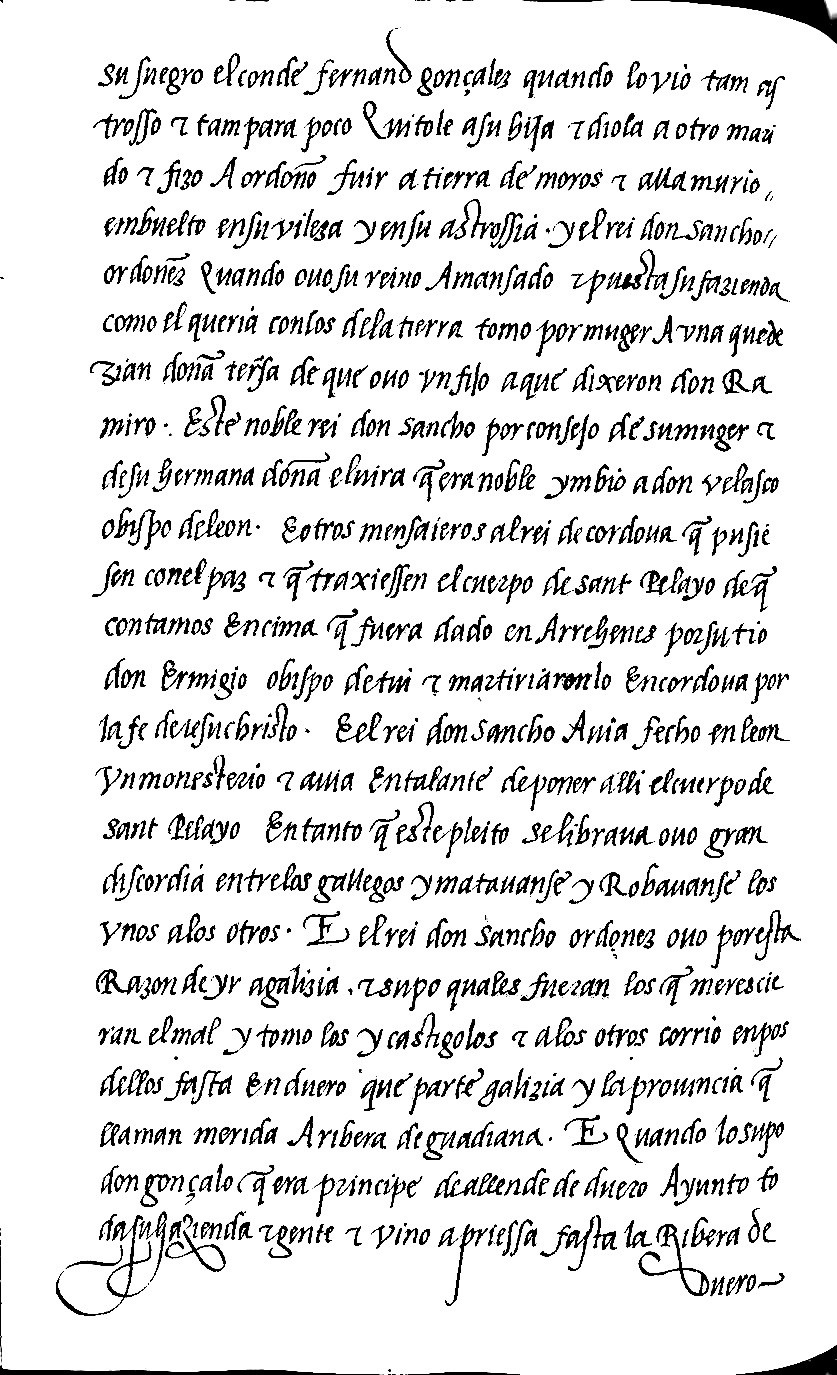 su suegro el conde fernando gonçalez quando lo vio tam as
trosso τ tam para poco Quitole a su hija τ diola a otro mari
do τ fizo A ordoño fuir a tierra de moros τ alla murio,
embuelto en su vileza y en su astrossia · y el rei don sancho
ordoñez Quando ouo su reino Amansado τ puesta su fazienda
como el queria con los de la tierra tomo por muger A vna que de
zian doña tersa de que ouo vn fijo a que dixeron don Ra
miro ·. Este noble rei don sancho por consejo de su muger τ
de su hermana doña eluira q̃ era noble ymbio a don velasco
obispo de leon · E otros mensaieros al rei de cordoua q̃ pusie
sen con el paz τ q̃ traxiessen el cuerpo de sant Pelayo de q̃
contamos Encima q̃ fuera dado en Arrehenes por su tio
don Ermigio obispo de tui τ martiriaronlo En cordoua por
la fe de iesu christo · E el rei don sancho Auia fecho en leon
Vn monesterio τ auia En talante de poner alli el cuerpo de
sant Pelayo En tanto q̃ este pleito se libraua ouo gran
discordia entre los gallegos y matauanse y Robauanse los
vnos a los otros · E el rei don sancho ordonez ouo por esta
Razon de yr a galizia . τ supo quales fueran los q̃ merescie
ran el mal y tomo los y castigolos τ a los otros corrio en pos
dellos fasta En duero que parte galizia y la prouincia q̃
llaman merida A ribera de guadiana · E Quando lo supo
don gonçalo q̃ era principe de allende de duero Ayunto to
da su hazienda τ gente τ vino a priessa fasta la Ribera de
Duero